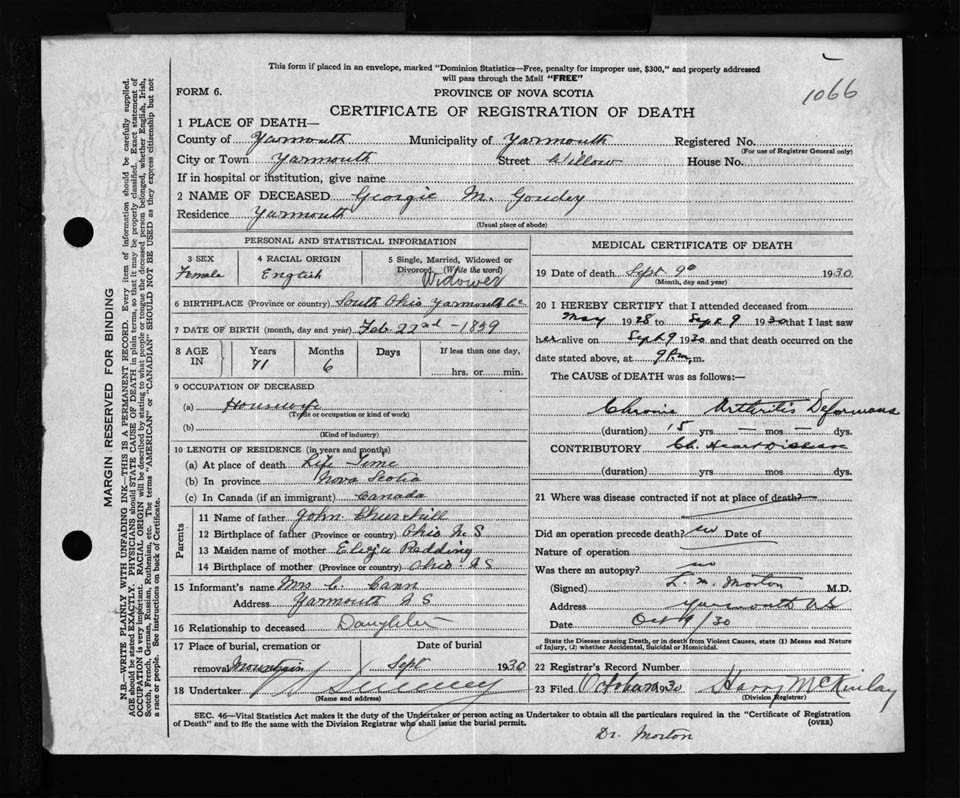 This form if placed in an envelope, marked "Dominion Statistics—Free, penalty for improper use, $300," and properly addressed
will pass through the Mail "FREE"
1066
FORM 6.
PROVINCE OF NOVA SCOTIA
CERTIFICATE OF REGISTRATION OF DEATH
1 PLACE OF DEATH—
County of Yarmouth Municipality of Yarmouth Registered No.
(For use of Registrar General only)
City or Town Yarmouth Street Willow House No.
If in hospital or institution, give name
2 NAME OF DECEASED Georgie M. Goudey
Residence Yarmouth
(Usual place of abode)
PERSONAL AND STATISTICAL INFORMATION
3 SEX 4 RACIAL ORIGIN 5 Single, Married, Widowed or
Divorced (Write the word)
Female English Widower
6 BIRTHPLACE (Province or country) South Ohio Yarmouth Co
7 DATE OF BIRTH (month, day and year) Feb 22nd - 1859
8 AGE IN Years Months Days If less than one day,
71 6 hrs. or min.
9 OCCUPATION OF DECEASED
(a) Housewife
(Trade or occupation or kind of work)
(b)
(Kind of industry)
10 LENGTH OF RESIDENCE (in years and months)
(a) At place of death Life Time
(b) In province Nova Scotia
(c) In Canada (if an immigrant) Canada
Parents
11 Name of father John Churchill
12 Birthplace of father (Province or country) Ohio N S
13 Maiden name of mother Eliza Redding
14 Birthplace of mother (Province or country) Ohio N S
15 Informant's name Mrs C Cann
Address Yarmouth N S
16 Relationship to deceased Daughter
17 Place of burial, cremation or Date of burial
removal Mountain Sept 1930
18 Undertaker Sweeney
(Name and address)
MEDICAL CERTIFICATE OF DEATH
19 Date of death Sept 9th 1930
(Month, day and year)
20 I HEREBY CERTIFY that I attended deceased from
May 1928 to Sept 9 1930 that I last saw
her alive on Sept 9 1930 and that death occurred on the
date stated above, at 9 P.m. m.
The CAUSE of DEATH was as follows:—
Chronic Arthritis Deformans
(duration) 15 yrs. — mos — dys.
CONTRIBUTORY Ch. Heart Disease
(duration) yrs. mos. dys.
21 Where was disease contracted if not at place of death?
Did an operation precede death? no Date of
Nature of operation
Was there an autopsy? no
(Signed) L. M. Morton M.D.
Address Yarmouth N.S.
Date Oct 9/30
State the Disease causing Death, or in death from Violent Causes, state (1) Means and Nature
of Injury, (2) whether Accidental, Suicidal or Homicidal.
22 Registrar's Record Number
23 Filed October 1930 Harry McKinlay
(Division Registrar)
SEC. 46—Vital Statistics Act makes it the duty of the Undertaker or person acting as Undertaker to obtain all the particulars required in the "Certificate of Registration
of Death" and to file the same with the Division Registrar who shall issue the burial permit. (OVER)
Dr. Morton
MARGIN RESERVED FOR BINDING
N.B.—WRITE PLAINLY WITH UNFADING INK—THIS IS A PERMANENT RECORD. Every item of information should be carefully supplied.
AGE should be stated EXACTLY. PHYSICIANS should STATE CAUSE OF DEATH in plain terms, so that it may be properly classified. Exact statement of
OCCUPATION is very important. RACIAL ORIGIN will be described by stating to what people or tongue the deceased person belonged, whether English, Irish,
Scotch, French, German, Russian, Ruthenian, etc. The terms "AMERICAN" or "CANADIAN" SHOULD NOT BE USED as they express citizenship but not
a race or people. See instructions on back of Certificate.